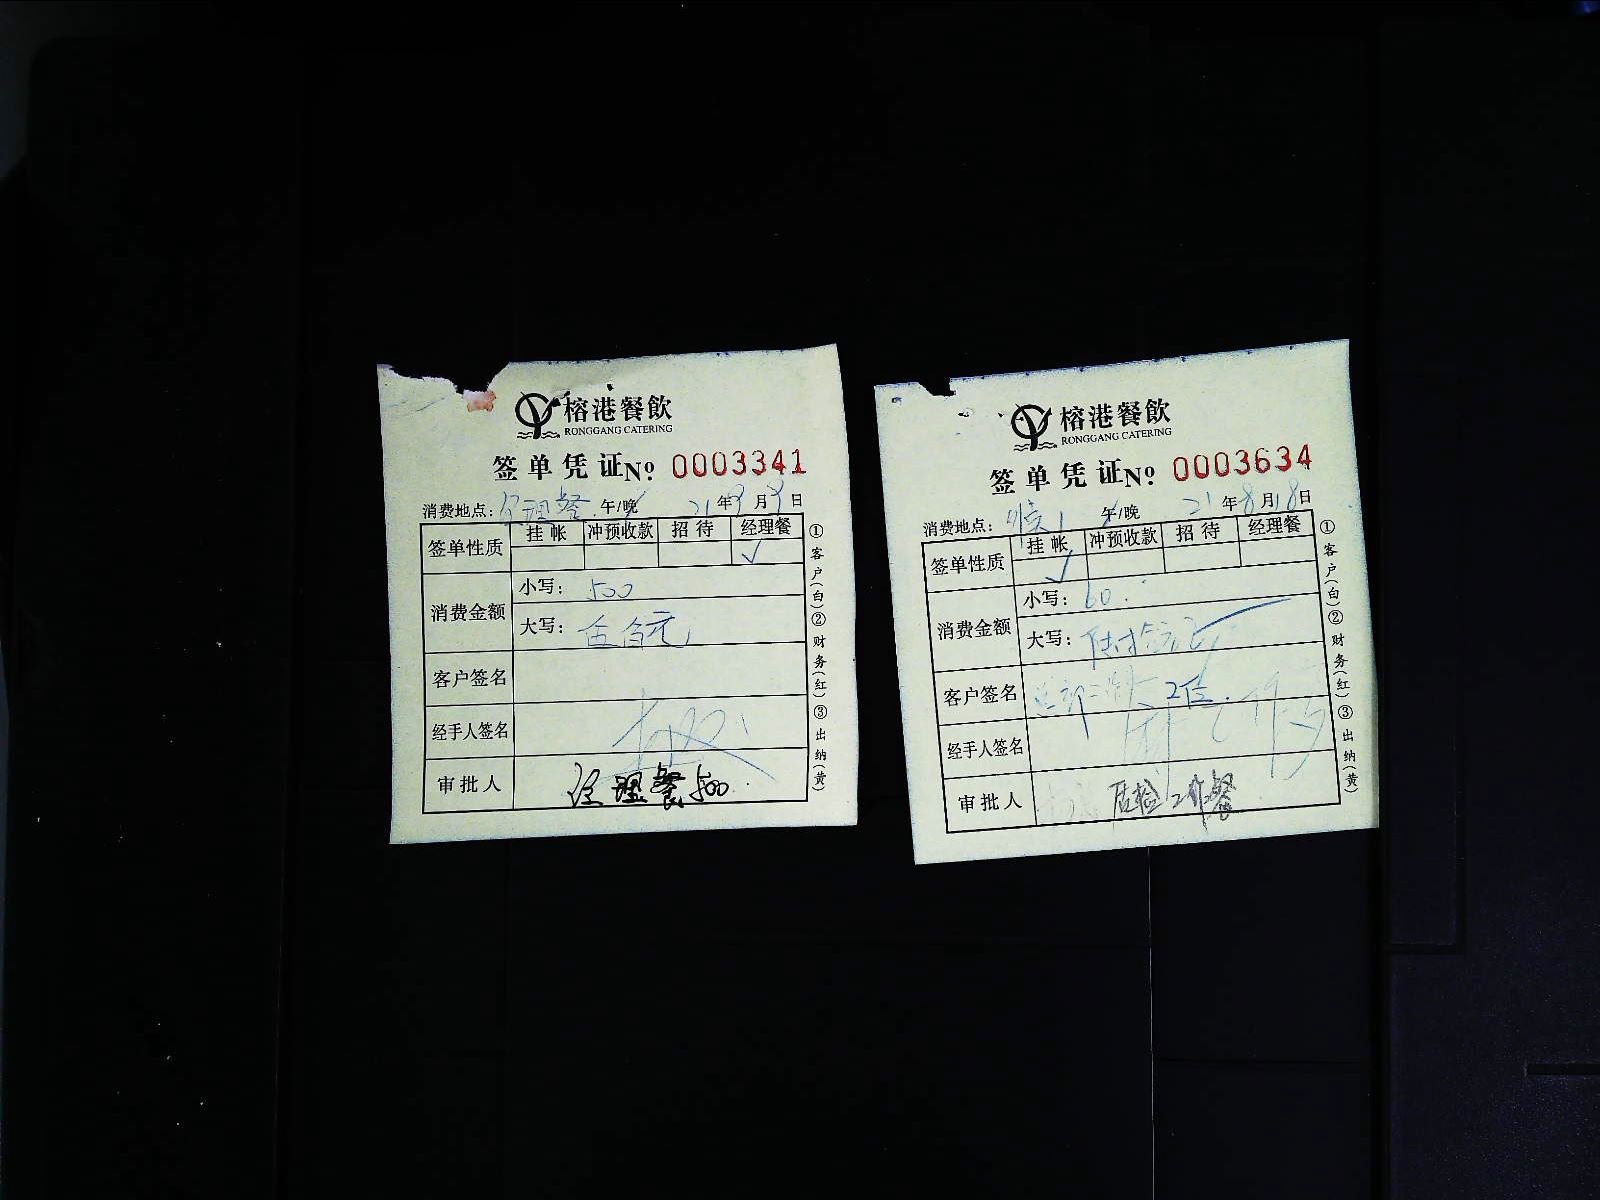 榕港餐飲
RONGGANG CATERING
签单凭证№ 0003341
消费地点：经理餐 午/晚 21年9月9日
签单性质 挂帐 冲预收款 招待 经理餐
✓
消费金额 小写：500
大写：伍佰元
客户签名
经手人签名
审批人 经理餐500
①客户（白）②财务（红）③出纳（黄）
榕港餐飲
RONGGANG CATERING
签单凭证№ 0003634
消费地点： 午/晚 21年8月18日
签单性质 挂帐 冲预收款 招待 经理餐
✓
消费金额 小写：60.
大写：陆拾元
客户签名 2位.
经手人签名
审批人 质检工作餐
①客户（白）②财务（红）③出纳（黄）